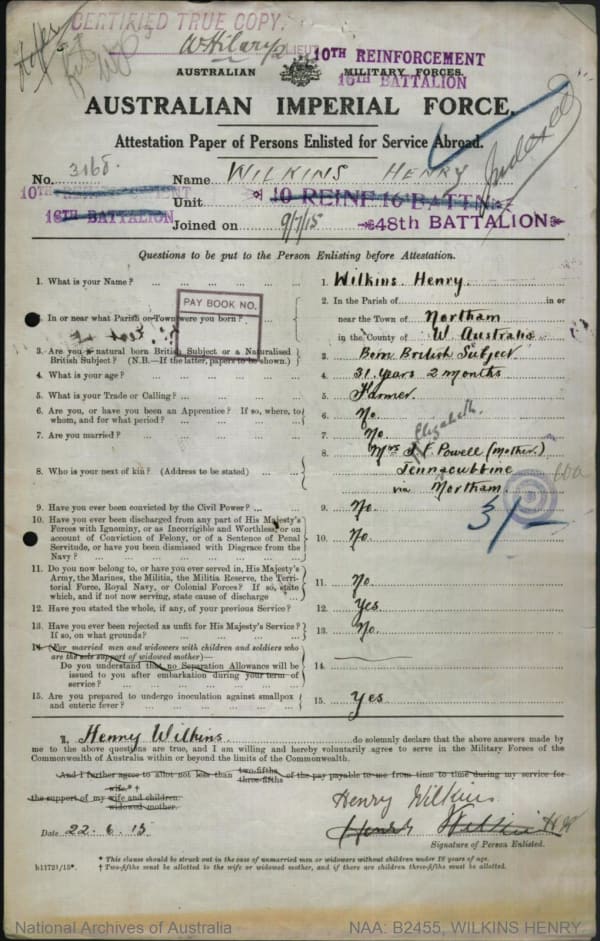 CERTIFIED TRUE COPY.
W Hilary LIEUT
10TH REINFORCEMENT
16TH BATTALION
AUSTRALIAN MILITARY FORCES.
AUSTRALIAN IMPERIAL FORCE.
Attestation Paper of Persons Enlisted for Service Abroad.
Indexed
No. 3168. Name WILKINS HENRY
10TH REINFORCEMENT
Unit 10 REINF 16 BATTN
16TH BATTALION
Joined on 9/7/15 48TH BATTALION
Questions to be put to the Person Enlisting before Attestation.
1. What is your Name? ... 1. Wilkins Henry
PAY BOOK NO.
2. In the Parish of in or
In or near what Parish or Town were you born? near the Town of Northam
in the County of W. Australia
3. Are you a natural born British Subject or a Naturalised
British Subject? (N.B.—If the latter, papers to be shown.) 3. Born British Subject
4. What is your age? ... 4. 31 Years 2 months
5. What is your Trade or Calling? ... 5. Farmer.
6. Are you, or have you been an Apprentice? If so, where, to
whom, and for what period? ... 6. No
7. Are you married? ... 7. No
Elizabeth.
8. Mrs J. F. Powell (Mother.)
8. Who is your next of kin? (Address to be stated) ... Jennacubbine
via Northam.
9. Have you ever been convicted by the Civil Power? ... 9. No.
3/-
10. Have you ever been discharged from any part of His Majesty's
Forces with Ignominy, or as Incorrigible and Worthless, or on
account of Conviction of Felony, or of a Sentence of Penal
Servitude, or have you been dismissed with Disgrace from the
Navy? ... 10. No.
11. Do you now belong to, or have you ever served in, His Majesty's
Army, the Marines, the Militia, the Militia Reserve, the Terri-
torial Force, Royal Navy, or Colonial Forces? If so, state
which, and if not now serving, state cause of discharge 11. No
12. Have you stated the whole, if any, of your previous Service? 12. Yes
13. Have you ever been rejected as unfit for His Majesty's Service?
If so, on what grounds? 13. No.
14. (For married men and widowers with children and soldiers who
are the sole support of widowed mother)—
Do you understand that no Separation Allowance will be
issued to you after embarkation during your term of
service? ... 14.
15. Are you prepared to undergo inoculation against smallpox
and enteric fever? ... 15. Yes
I, Henry Wilkins do solemnly declare that the above answers made by
me to the above questions are true, and I am willing and hereby voluntarily agree to serve in the Military Forces of the
Commonwealth of Australia within or beyond the limits of the Commonwealth.
And I further agree to allot not less than two-fifths three-fifths of the pay payable to me from time to time during my service for
wife*†
the support of my wife and children.
widowed mother.
Henry Wilkins
Date 22.6.15 Henry Wilkins HW
Signature of Person Enlisted.
* This clause should be struck out in the case of unmarried men or widowers without children under 18 years of age.
b1172)/15*. † Two-fifths must be allotted to the wife or widowed mother, and if there are children three-fifths must be allotted.
National Archives of Australia NAA: B2455, WILKINS HENRY